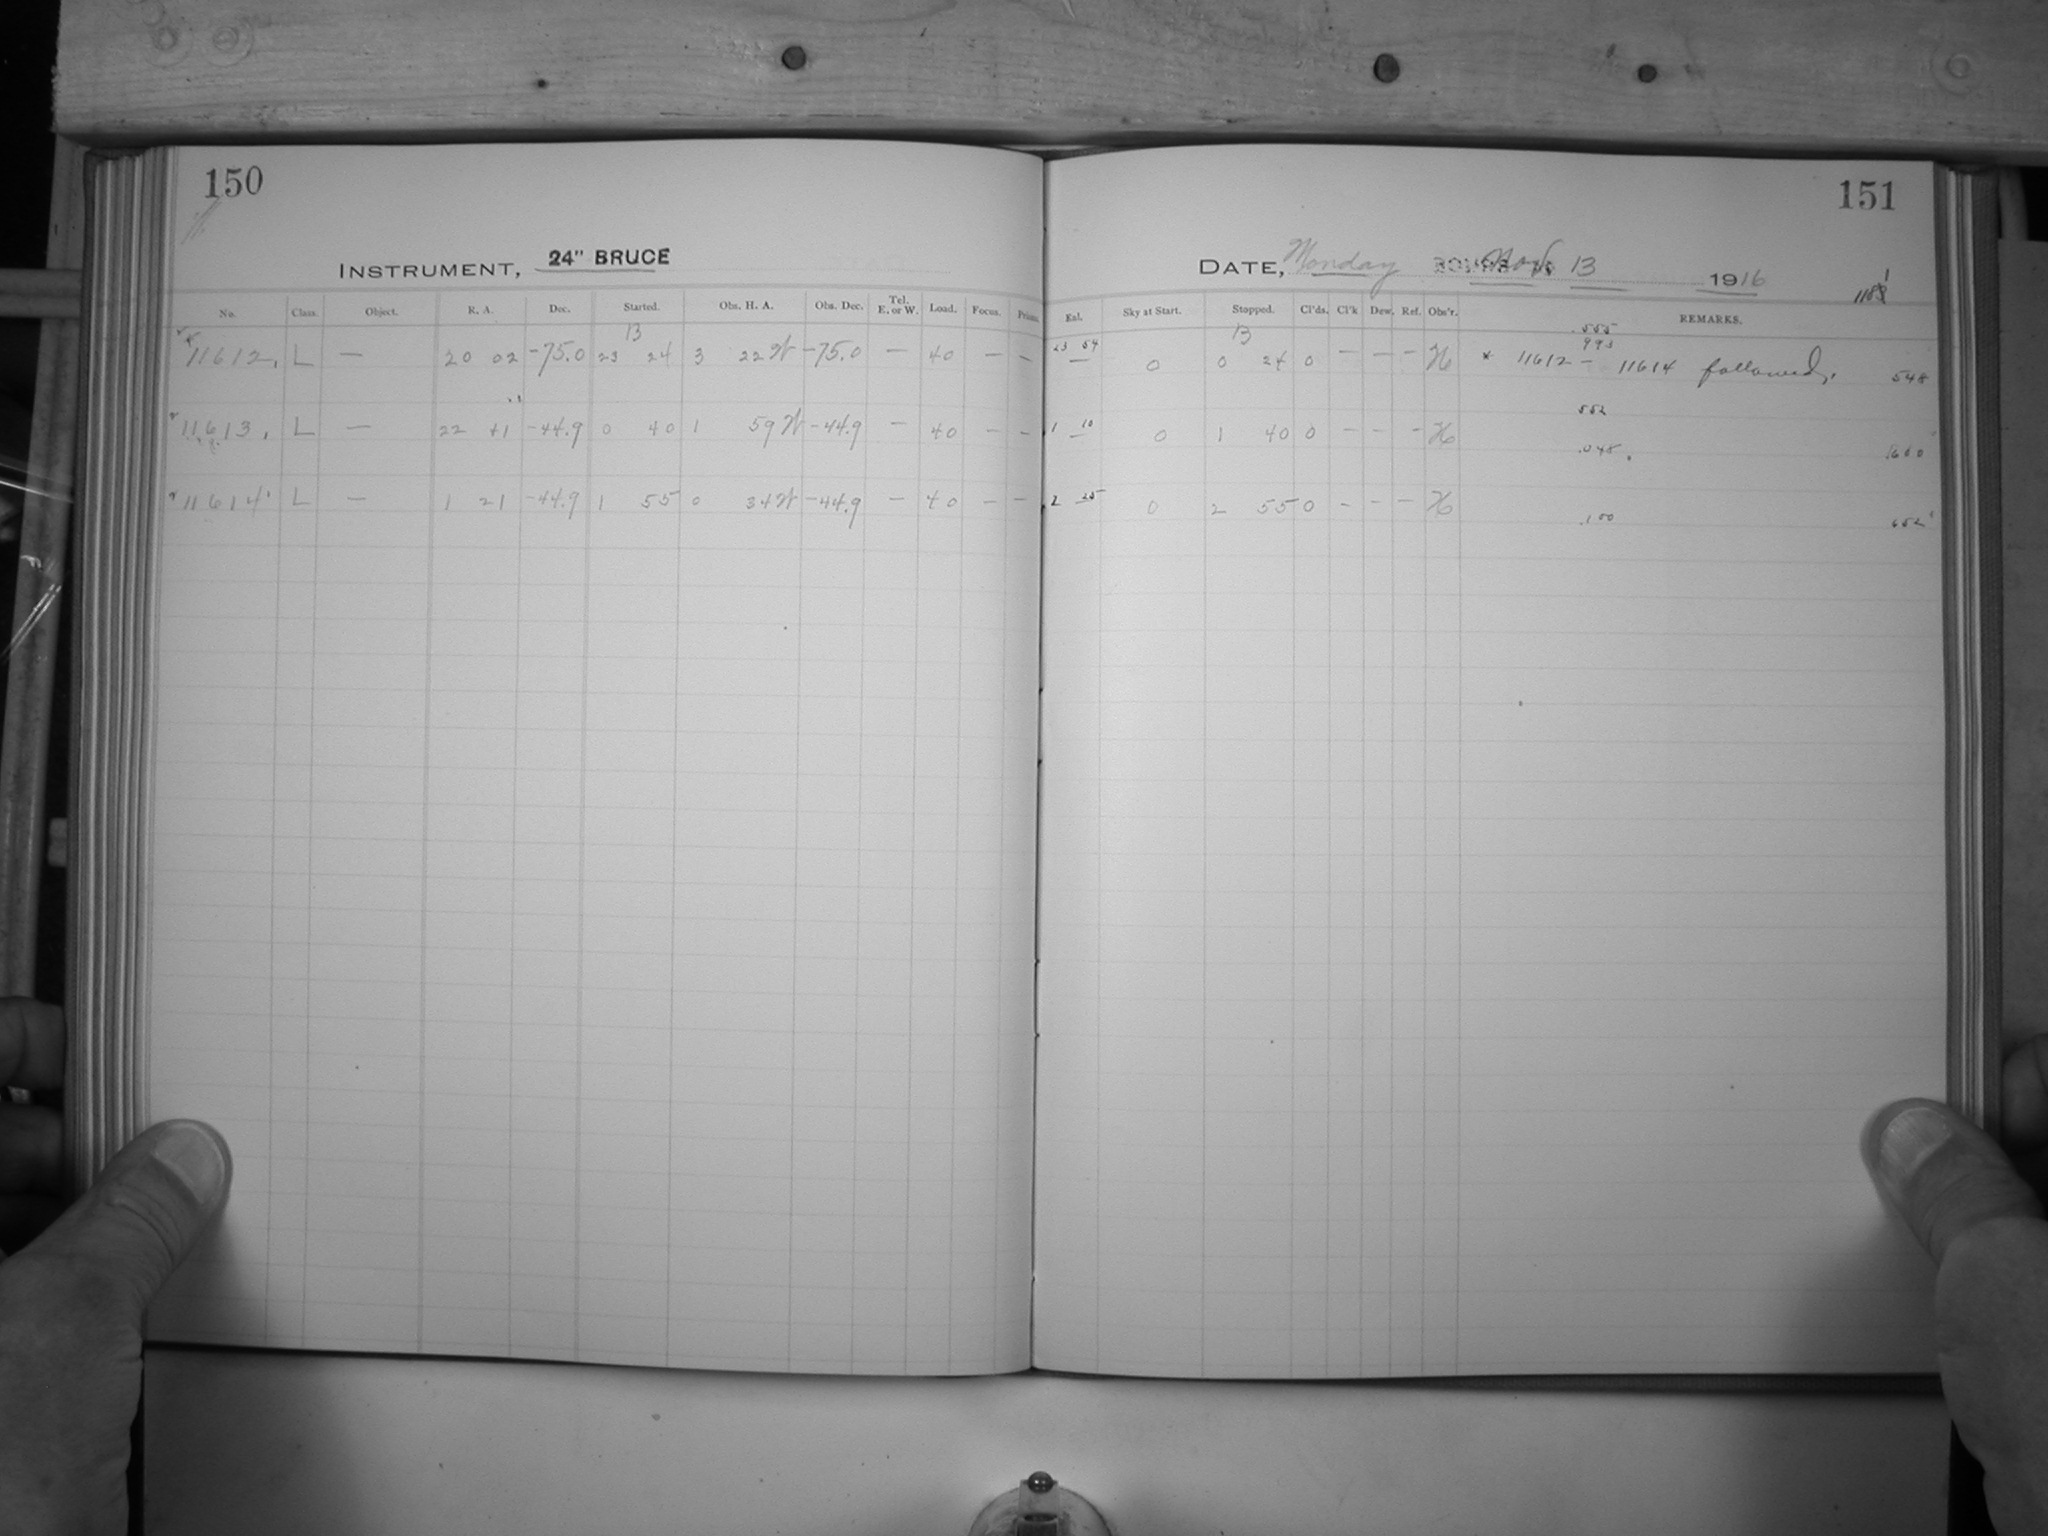 150
INSTRUMENT, 24" BRUCE
No. Class. Object. R. A. Dec. Started. Obs. H. A. Obs. Dec. Tel. E. or W. Load. Focus. Prisms.
13
* 11612, L — 20 02 -75.0 23 24 3 22 W -75.0 — 40 — —
* 11613, L — 22 41 -44.9 0 40 1 59 W -44.9 — 40 — —
* 11614' L — 1 21 -44.9 1 55 0 34 W -44.9 — 40 — —
151
DATE, Monday Nov. 13 1916
Exl. Sky at Start. Stopped. Cl'ds. Cl'k Dew. Ref. Obs'r. REMARKS.
13 .555
993
23 54 0 0 24 0 — — — H * 11612 — 11614 followed. 548
552
1 10 0 1 40 0 — — — H .048. 600
2 25 0 2 55 0 — — — H .100 652